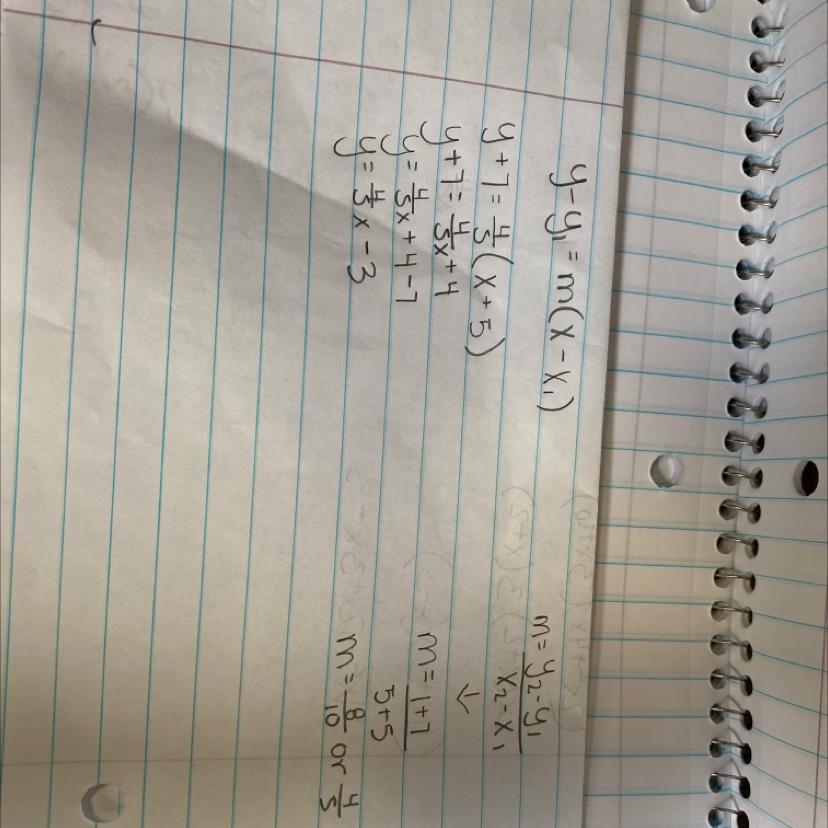 y - y₁ = m(x - x₁)
y + 7 = 4/5 (x + 5)
y + 7 = 4/5x + 4
y = 4/5x + 4 - 7
y = 4/5x - 3
m = y₂ - y₁ / x₂ - x₁
↓
m = 1 + 7 / 5 + 5
m = 8/10 or 4/5